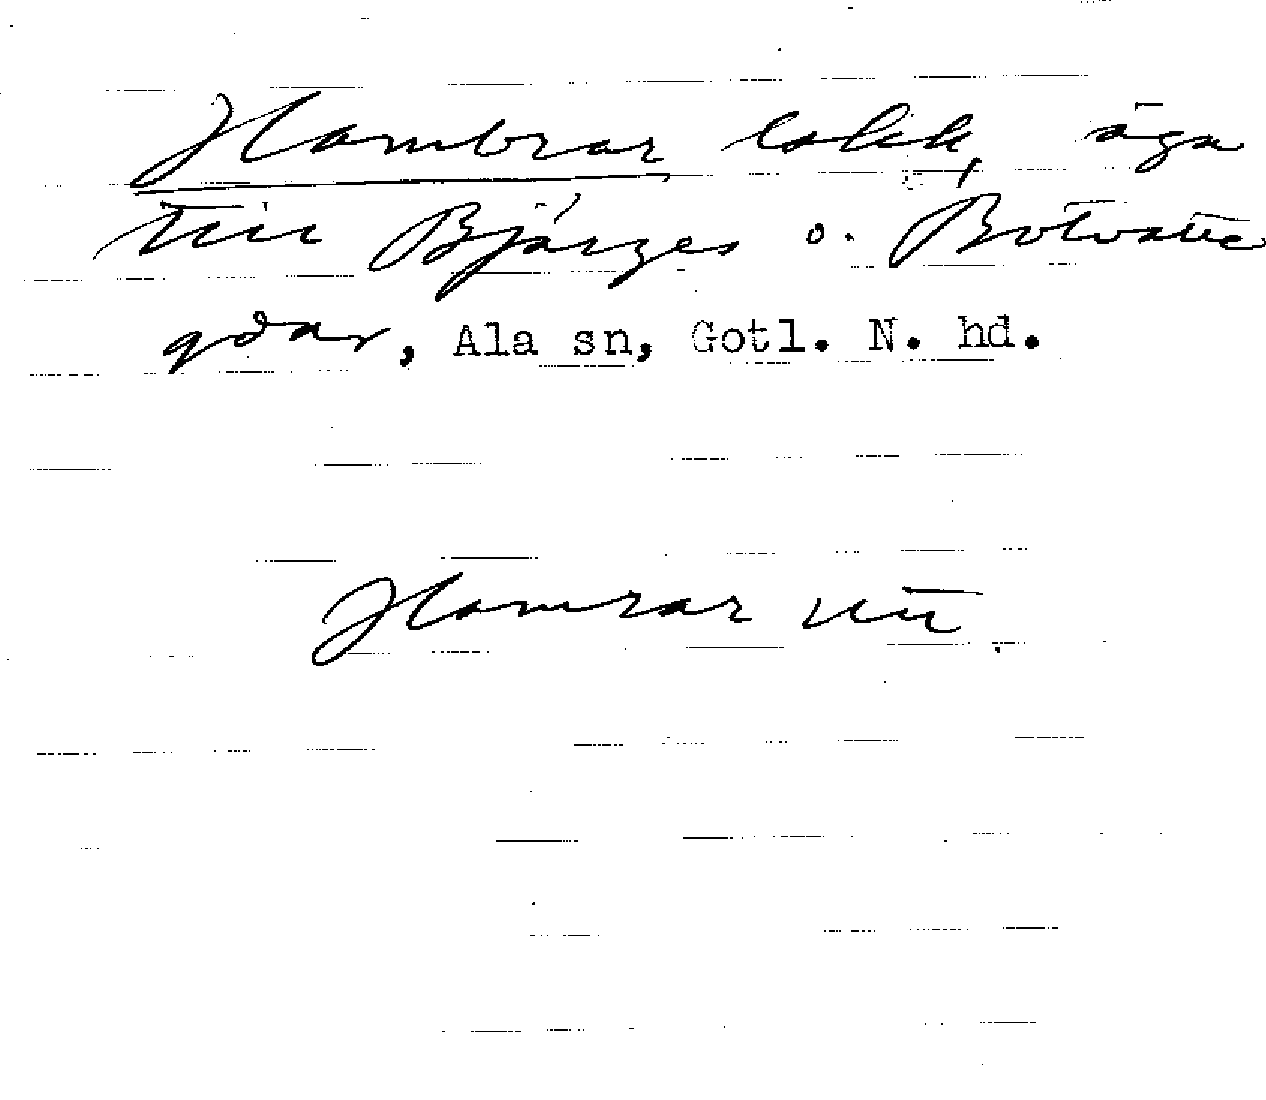 Hambrar lokk, äga
till Bjärges o. Botvatte
gdar, Ala sn, Gotl. N. hd.
Hamrar